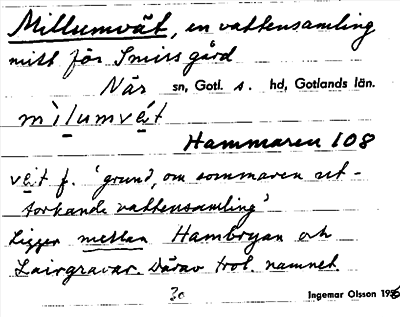 Millumvät, en vattensamling
mitt för Smiss gård
När sn, Gotl. s. hd, Gotlands län.
mìlumvé̜t
Hammaren 108
ve̜t f. 'grund, om sommaren ut-
torkande vattensamling'
Ligger mellan Hambryan och
Lairgravar. Därav trol. namnet.
Ingemar Olsson